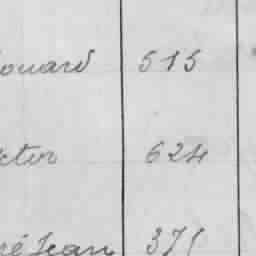 ouard 515
ctor 624
é Jean 375